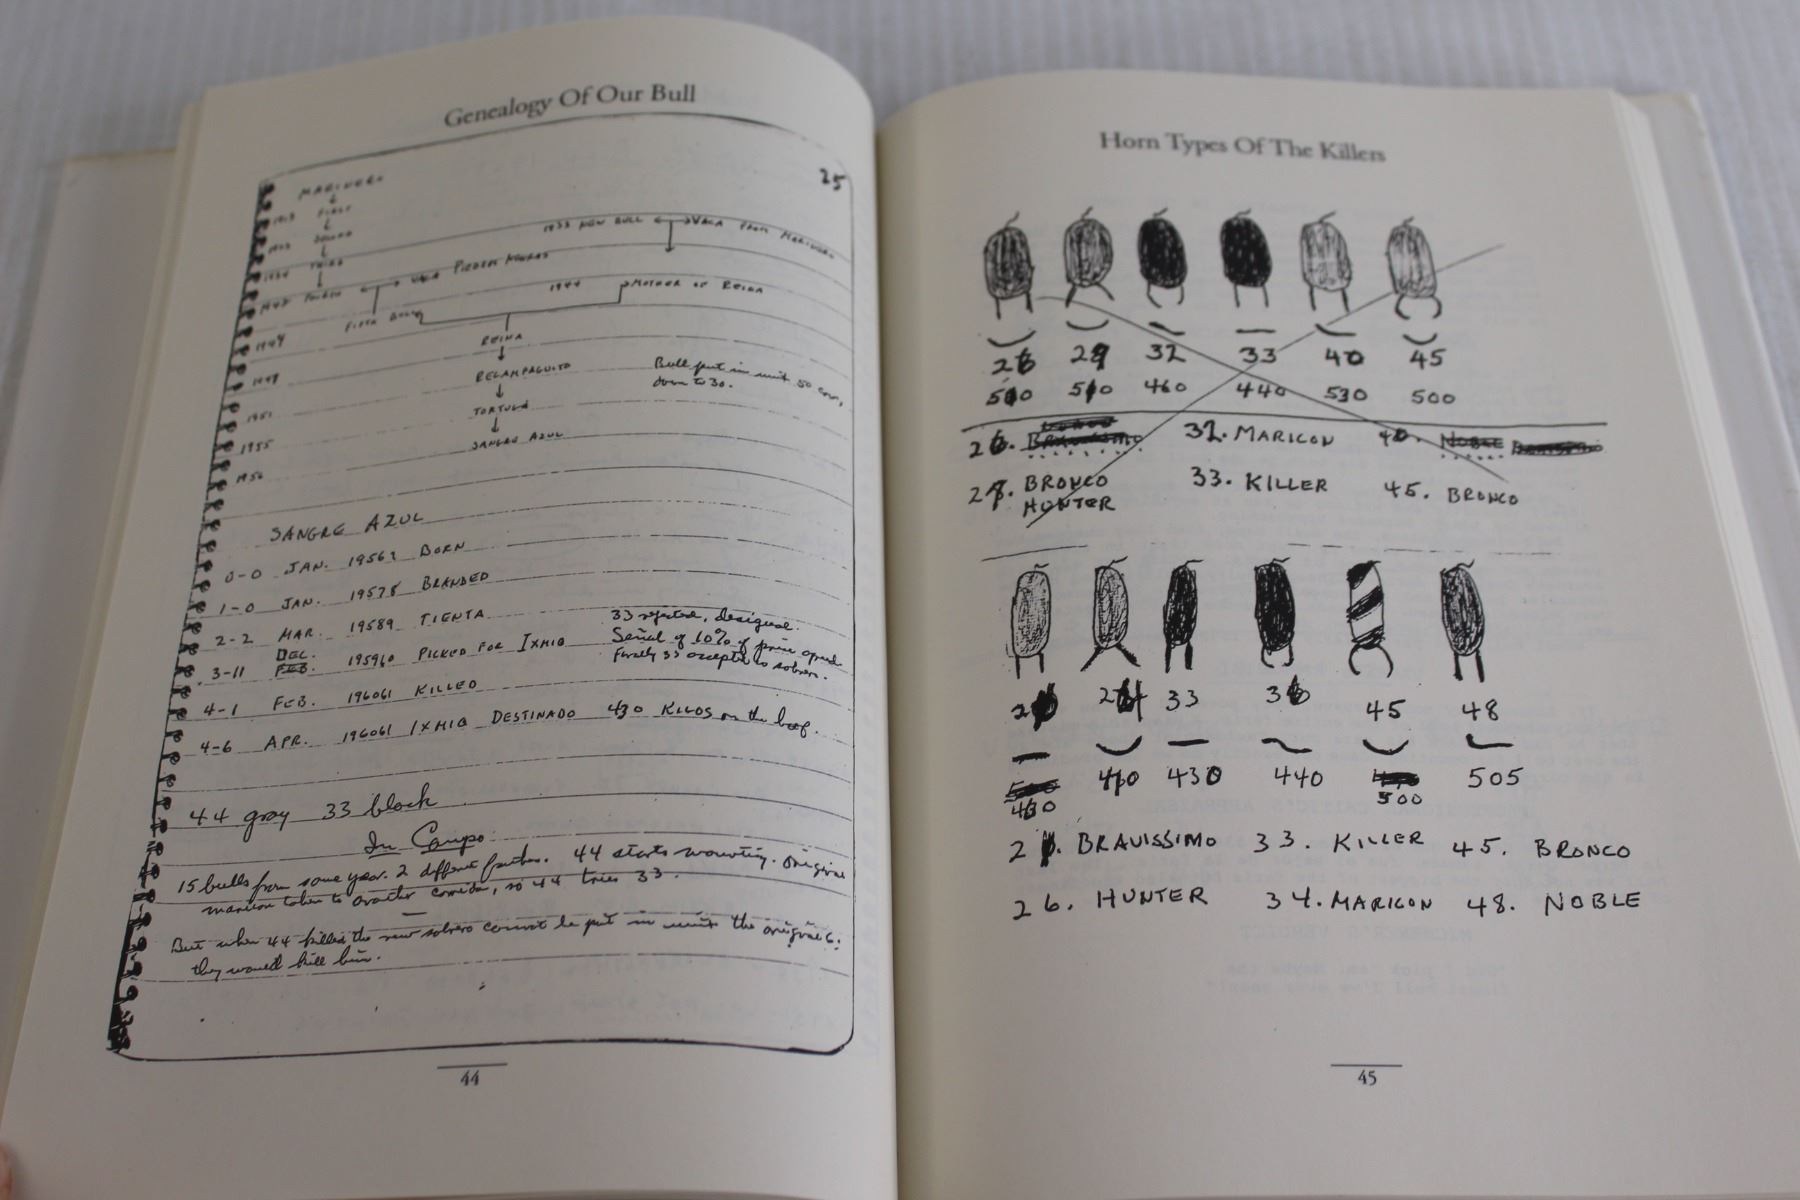 Genealogy Of Our Bull
25
MARINERO
FIRST
SECOND
THIRD
1933 NEW BULL VACA FROM MARINERO
VACA PIEDRAS NEGRAS
1944 MOTHER OF REINA
1949
REINA
RELAMPAGUITO
Bull put in with 50 cows,
down to 30.
1951
TORTUGA
1955
SANGRE AZUL
1956
SANGRE AZUL
0-0 JAN. 1956 BORN
1-0 JAN. 1957 BRANDED
2-2 MAR. 1958 TIENTA
33 rejected, desigual.
DEC.
3-11 FEB. 1959 PICKED FOR IXMIQ
Serial of 10% of price
Finally 33 accepted as sobrero.
4-1 FEB. 1960 61 KILLED
4-6 APR. 1960 61 IXMIQ DESTINADO 430 KILOS on the hoof.
44 gray 33 black
In Campo
15 bulls from same year. 2 different fathers. 44 starts mounting. Original
maricon taken to another corrida, so 44 tries 33.
But when 44 killed the new sobrero cannot be put in with the original 6:
they would kill him.
44
Horn Types Of The Killers
26 29 32 33 40 45
510 510 460 440 530 500
26. BRAVISSIMO 32. MARICON 40. NOBLE
BRONCO 33. KILLER 45. BRONCO
HUNTER
33 45 48
460 430 440 505
430 500
BRAVISSIMO 33. KILLER 45. BRONCO
26. HUNTER 34. MARICON 48. NOBLE
45